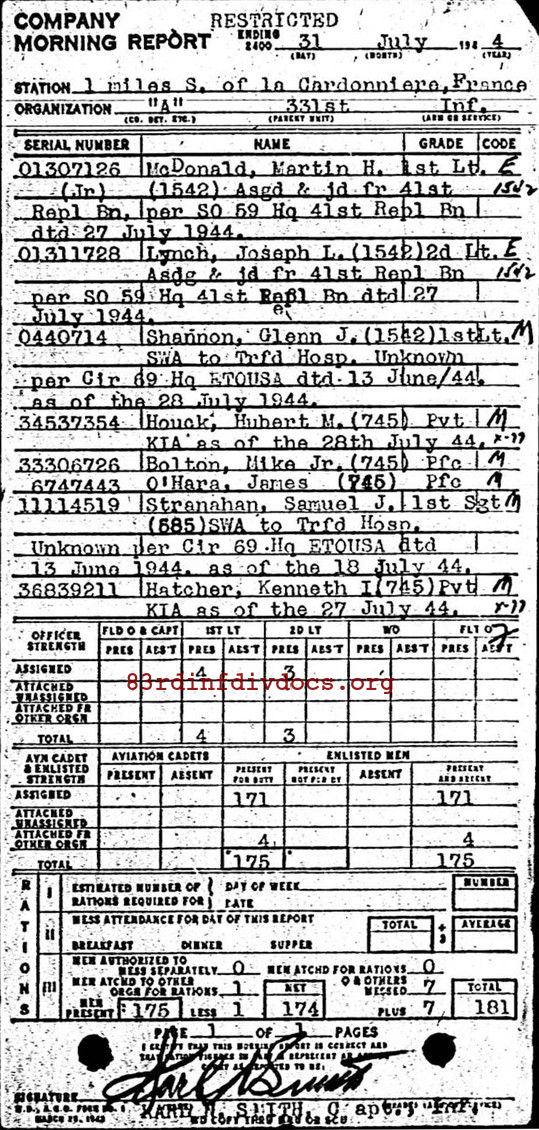 COMPANY RESTRICTED
MORNING REPORT ENDING 2400 31 July 194 4
(DAY) (MONTH) (YEAR)
STATION 1 miles S. of la Cardonniere, France
ORGANIZATION "A" 331st Inf.
(CO. DET. ETC.) (PARENT UNIT) (ARM OR SERVICE)
SERIAL NUMBER NAME GRADE CODE
01307126 McDonald, Martin H. 1st Lt. E
(Jr) (1542) Asgd & jd fr 41st 1542
Repl Bn, per SO 59 Hq 41st Repl Bn
dtd 27 July 1944.
01311728 Lynch, Joseph L. (1542) 2d Lt. E
Asdg & jd fr 41st Repl Bn 1542
per SO 59 Hq 41st Repl Bn dtd 27
July 1944.
0440714 Shannon, Glenn J. (1542) 1st Lt. M
SWA to Trfd Hosp. Unknown
per Cir 69 Hq ETOUSA dtd 13 June/44.
as of the 28 July 1944.
34537354 Houck, Hubert M. (745) Pvt M
KIA as of the 28th July 44.
33306726 Bolton, Mike Jr. (745) Pfc M
6747443 O'Hara, James (745) Pfc M
11114519 Stranahan, Samuel J. 1st Sgt M
(585) SWA to Trfd Hosp.
Unknown per Cir 69 Hq ETOUSA dtd
13 June 1944. as of the 18 July 44.
36839211 Hatcher, Kenneth I (745) Pvt M
KIA as of the 27 July 44.
OFFICER STRENGTH FLD O & CAPT 1ST LT 2D LT WO FLT O
PRES ABS'T PRES ABS'T PRES ABS'T PRES ABS'T PRES ABS'T
ASSIGNED 4 3
83rdinfdivdocs.org
ATTACHED UNASSIGNED
ATTACHED FR OTHER ORGN
TOTAL 4 3
AVN CADET & ENLISTED STRENGTH AVIATION CADETS ENLISTED MEN
PRESENT ABSENT PRESENT FOR DUTY PRESENT NOT FOR DY ABSENT PRESENT AND ABSENT
ASSIGNED 171 171
ATTACHED UNASSIGNED
ATTACHED FR OTHER ORGN 4 4
TOTAL 175 175
RATIONS
I ESTIMATED NUMBER OF RATIONS REQUIRED FOR DAY OF WEEK NUMBER
DATE
II MESS ATTENDANCE FOR DAY OF THIS REPORT TOTAL ÷ 3 AVERAGE
BREAKFAST DINNER SUPPER
III MEN AUTHORIZED TO MESS SEPARATELY 0 MEN ATCHD FOR RATIONS 0
MEN ATCHD TO OTHER ORGN FOR RATIONS 1 NET O & OTHERS MESSED 7 TOTAL
MEN PRESENT 175 LESS 1 174 PLUS 7 181
PAGE 1 OF 1 PAGES
I CERTIFY THAT THIS MORNING REPORT IS CORRECT AND
SIGNATURE
W.D., A.G.O. FORM NO. 1
MARCH 29, 1943
KARL N SMITH, Capt., Inf.